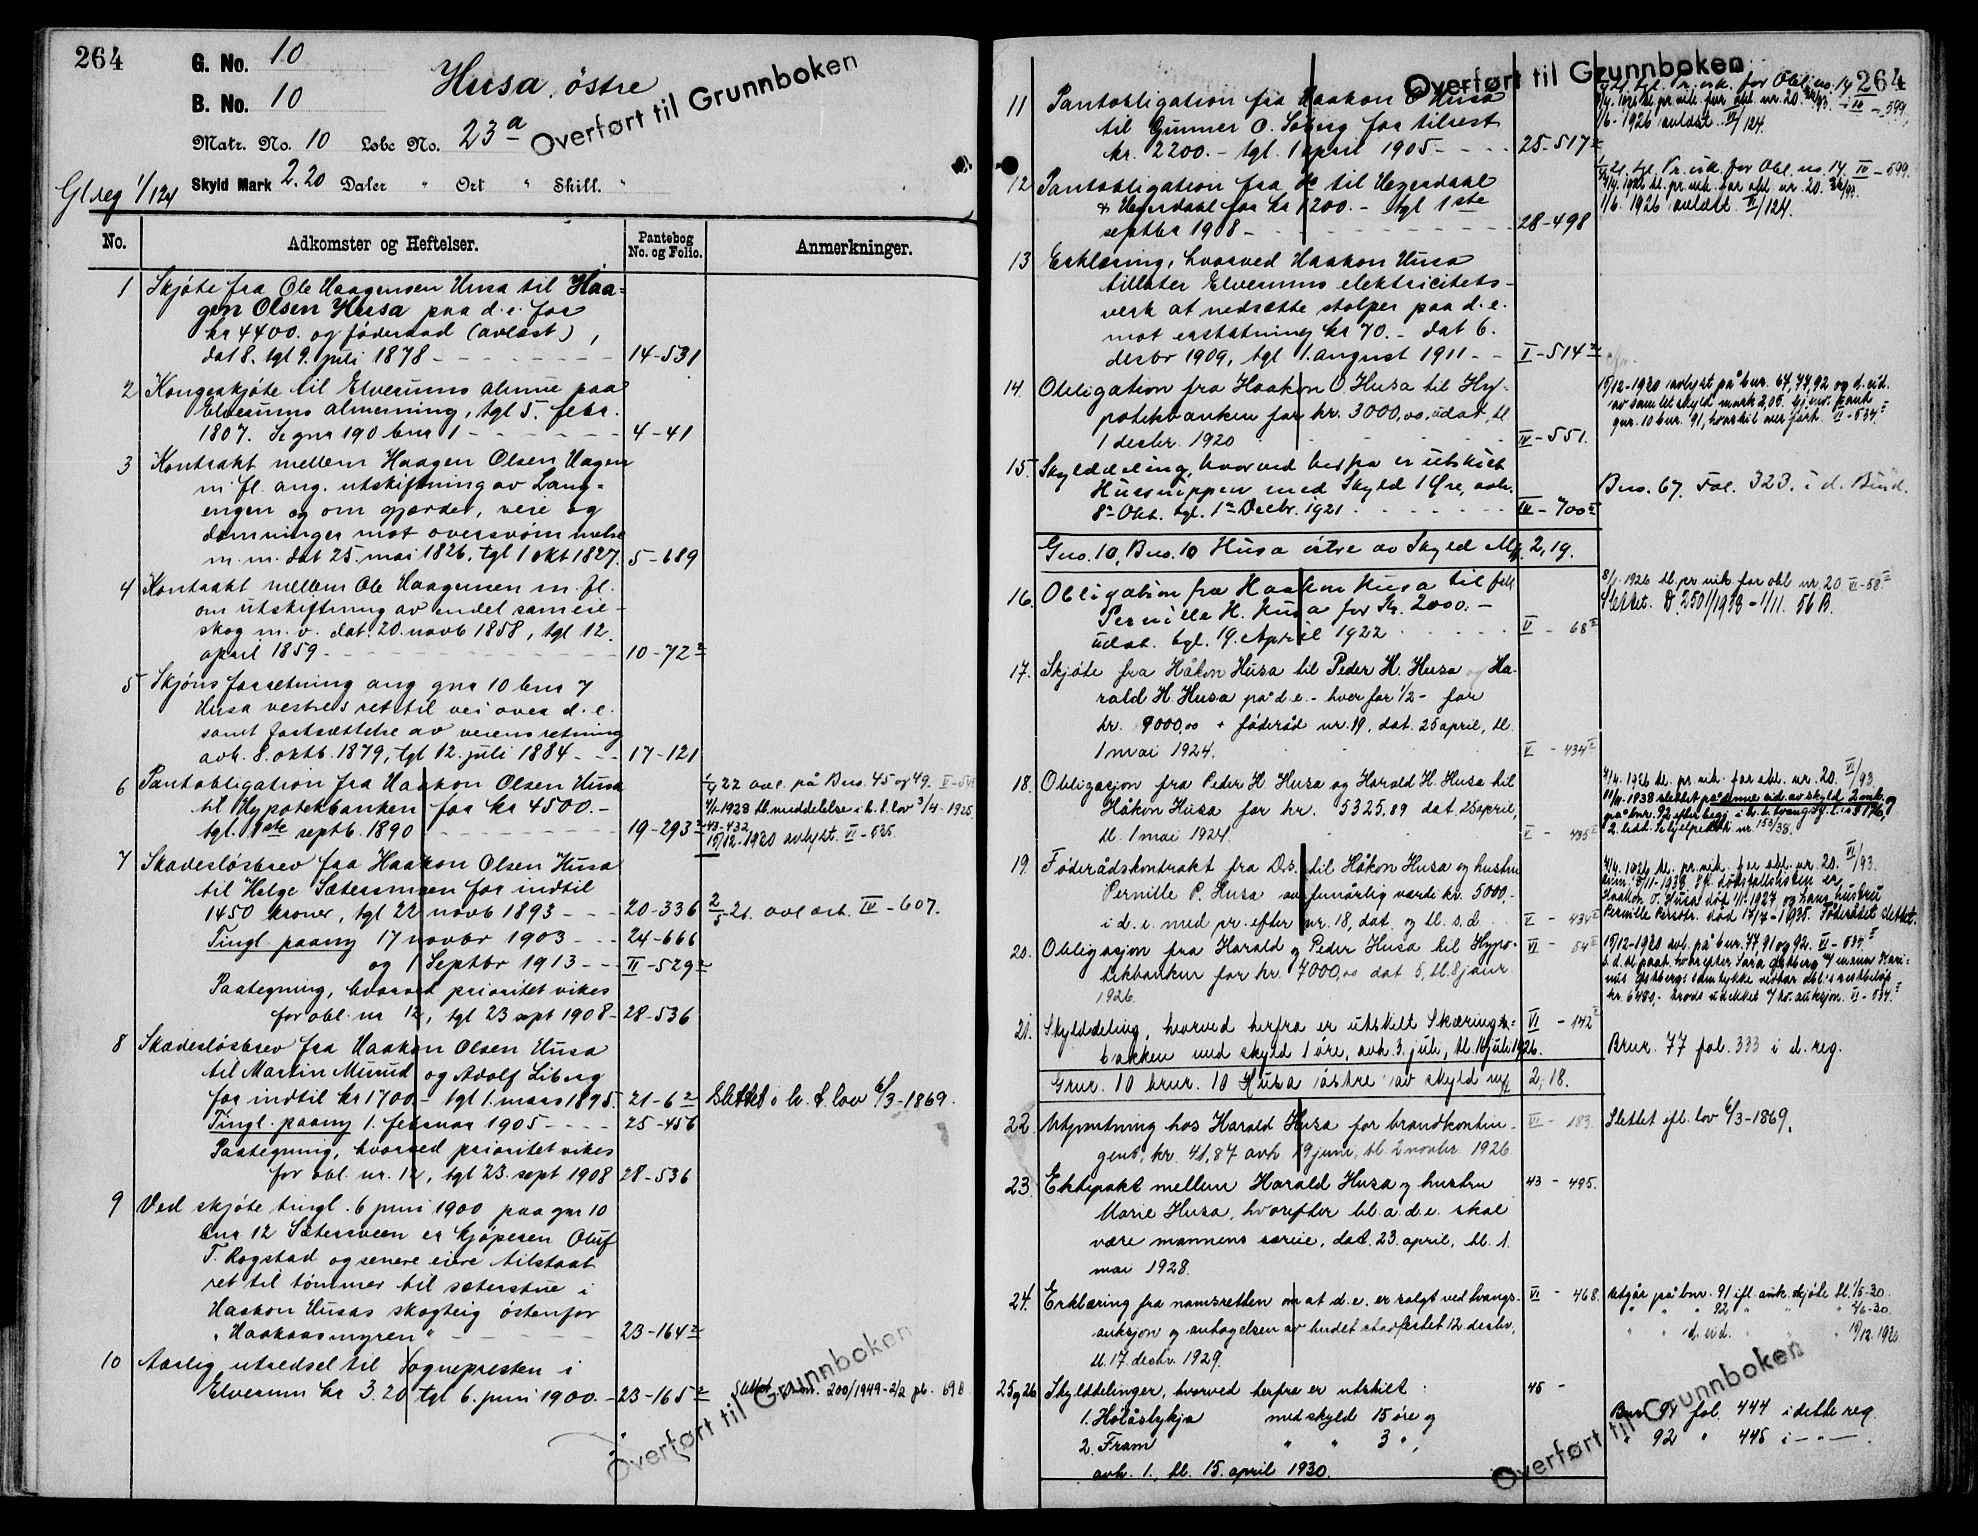 264
G. No. 10
B. No. 10
Husa østre
Overført til Grunnboken
Matr. No. 10 Løbe No. 23a
Skyld Mark 2.20 Daler " Ort " Skill. "
Gl reg 1/124
No. Adkomster og Heftelser. Pantebog No. og Folio. Anmerkninger.
1 Skjøte fra Ole Haagensen Husa til Haa=
gen Olsen Husa paa d. e. for
kr 4400. og føderaad (avløst),
dat 8. tgl 9. juli 1878 - 14-531
2 Kongeskjøte til Elverums almue paa
Elverums almenning, tgl 5. febr.
1807. Se gnr 190 bnr 1 - 4-41
3 Kontrakt mellem Haagen Olsen Hagen
m. fl. ang. utskiftning av Lang=
engen og om gjærder, veie og
demninger mot oversvømmelse
m. m. dat 25. mai 1826, tgl 1 okt 1827. 5-689
4 Kontrakt mellem Ole Haagensen m. fl.
om utskiftning av endel sameie-
skog m. v. dat. 20. novb 1858, tgl 12.
april 1859 - 10-72²
5 Skjønsforretning ang gnr 10 bnr 7
Husa vestres ret til vei over d. e.
samt fastsættelse av veiens retning
avh. 8. oktb. 1879, tgl 12. juli 1884 - 17-121
6 Pantobligation fra Haakon Olsen Husa
til Hypotekbanken for kr 4500.-
tgl. 1ste septb. 1890 - 19-293²
22 avl. på Bno. 45 og 49.
1928 tl. meddelelse i h. t. lov 3/4-1925
43-432
15/12-1930 avlyst. VI-535
7 Skadesløsbrev fra Haakon Olsen Husa
til Helge Sætersmoen for indtil
1450 kroner, tgl 22 novb 1893 - 20-336 2/5-21. avl. IV-607.
Tingl. paany 17 novbr 1903 - 24-666
og 1 Septbr 1913 - II-529²
Paategning, hvorved prioritet vikes
for obl. nr 12, tgl 23 sept 1908 - 28-536
8 Skadesløsbrev fra Haakon Olsen Husa
til Martin Muud og Adolf Liberg
for indtil kr 1700 - tgl 1. mars 1895. 21-6² Slettet i h. t. lov 6/3-1869.
Tingl. paany 1. februar 1905 - 25-456
Paategning, hvorved prioritet vikes
for obl. nr. 12, tgl 23. sept 1908 28-536
9 Ved skjøte tingl. 6 juni 1900 paa gnr 10
bnr 12 Sætersveen er kjøperen Oluf
T. Rogstad og senere eiere tilstaat
ret til tømmer til sæterstue i
Haakon Husas skogteig østenfor
"Haakaasmyren" - 23-164²
10 Aarlig utredsel til Sognepresten i
Elverum kr 3.20 tgl 6. juni 1900. - 23-165² Slettet 200/1949-2/2
Overført til Grunnboken
Overført til Grunnboken
264
11 Pantobligation fra Haakon O Husa
til Gunner O. Søberg for tilrest
kr. 2200.- tgl. 1 april 1905 - 25-517²
tgl. Pr. vik. for Obl. no. 14 IV-599.
1926 tl. pr. vik. for obl. nr. 20.
1/6-1926 avløst. II/124.
12 Pantobligation fra Do til Hegerdahl
& Hegerdahl for kr 1200.- tgl 1ste
septbr 1908 - 28-498
tgl. Pr. vik. for Obl. no. 14 IV-599.
1926 tl. pr. vik. for obl. nr. 20.
1/6. 1926 avløst. II/124.
13 Erklæring, hvorved Haakon Husa
tillater Elverums elektricitets-
verk at nedsætte stolper paa d. e.
mot erstatning kr 70.- dat 6.
desbr 1909, tgl 1. august 1911 - I-514²
14. Obligation fra Haakon O. Husa til Hy-
potekbanken for kr. 3000,00 udat, tl.
1 desbr. 1920 IV-551.
15/12-1930 avlyst på bnr. 67, 77, 92 og d. eid.
av samlet skyld mark 2,05. Gjenv. pant
gnr. 10 bnr. 91, hvortil overført. VI-534
15. Skylddeling, hvorved herfra er utskilt
Husnippen med Skyld 1 Øre, avh.
8. Okt. tgl. 1. Decbr. 1921 IV-700 Bno. 67. Fol. 323. i d. Bind.
Gno. 10, Bno. 10 Husa østre av Skyld Mk 2,19.
16. Obligation fra Haakon Husa til
Pernille H. Husa for Kr. 2000.-
udat. tgl. 19. April 1922 V-68
8/1-1926 tl. pr. vik. for obl. nr 20 VI-58
Slettet. D. 2501/1938-1/11. 56 B.
17. Skjøte fra Håkon Husa til Peder H. Husa og Ha-
rald H. Husa på d. e. - hver for 1/2 - for
kr. 9000,00 + føderåd nr. 19, dat. 25 april, tl.
1 mai 1924. V-434
18. Obligasjon fra Peder H. Husa og Harald H. Husa til
Håkon Husa for kr. 5325,89 dat. 25 april,
tl. 1 mai 1924. V-435
1926 tl. pr. vik. for obl. nr. 20. VI/93
1938 slettet på denne eid. av skyld 2 mk. og
på bnr. 92 efter
2. ledd. nr. 153/38.
19. Føderådskontrakt fra Ds. til Håkon Husa og hustru
Pernille P. Husa av femårlig værdi kr. 5000,-
i d. e. med pr. efter nr. 18, dat. og tl. s. d. V-434
1926 tl. pr. vik. for obl. nr. 20. VI/93
dødsfallslisten er
Haakon O. Husa død 1927 og hans hustru
Pernille død 17/7-1935. Føderådet slettet.
20. Obligasjon fra Harald og Peder Husa til Hypo-
tekbanken for kr. 7000,00 dat 5, tl. 8 januar
1926. VI-54
15/12-1930 avl. på bnr. 77, 91 og 92. VI-534
21. Skylddeling, hvorved herfra er utskilt Skærings-
bakken med skyld 1 øre, avh. 3. juli, tl. juli 1926. VI-142 Bnr. 77 fol. 333 i d. reg.
Gnr. 10 bnr. 10 Husa østre av skyld mk 2,18.
22. Utpantning hos Harald Husa for brandkontin-
gent, kr. 41,87 avh. 19 juni, tl. 2 novbr. 1926 VI-183. Slettet efl. lov 6/3-1869.
23. Ektepakt mellem Harald Husa og hustru
Marie Husa, hvorefter bl. a. d. e. skal
være mannens særeie, dat. 23. april, tl. 1.
mai 1928. 43-495.
24. Erklæring fra namsretten om at d. e. er solgt ved tvangs-
auksjon og antagelsen av budet stadfestet 12 desbr,
tl. 17. desbr. 1929. VI-468.
Utgår på bnr. 91 ifl. auk. skjøte tl. 1/5-30.
" " " 92 " " " 4/6-30
" " d. eid. " " 15/12. 1930
25 og 26. Skylddelinger, hvorved herfra er utskilt: 45 -
1. Holåslykja med skyld 15 øre og Bnr. 91 fol. 444 i dette reg.
2. Fram " " 3 ", " 92 " 445 i - " -
avh. 1., tl. 15. april 1930.
Overført til Grunnboken